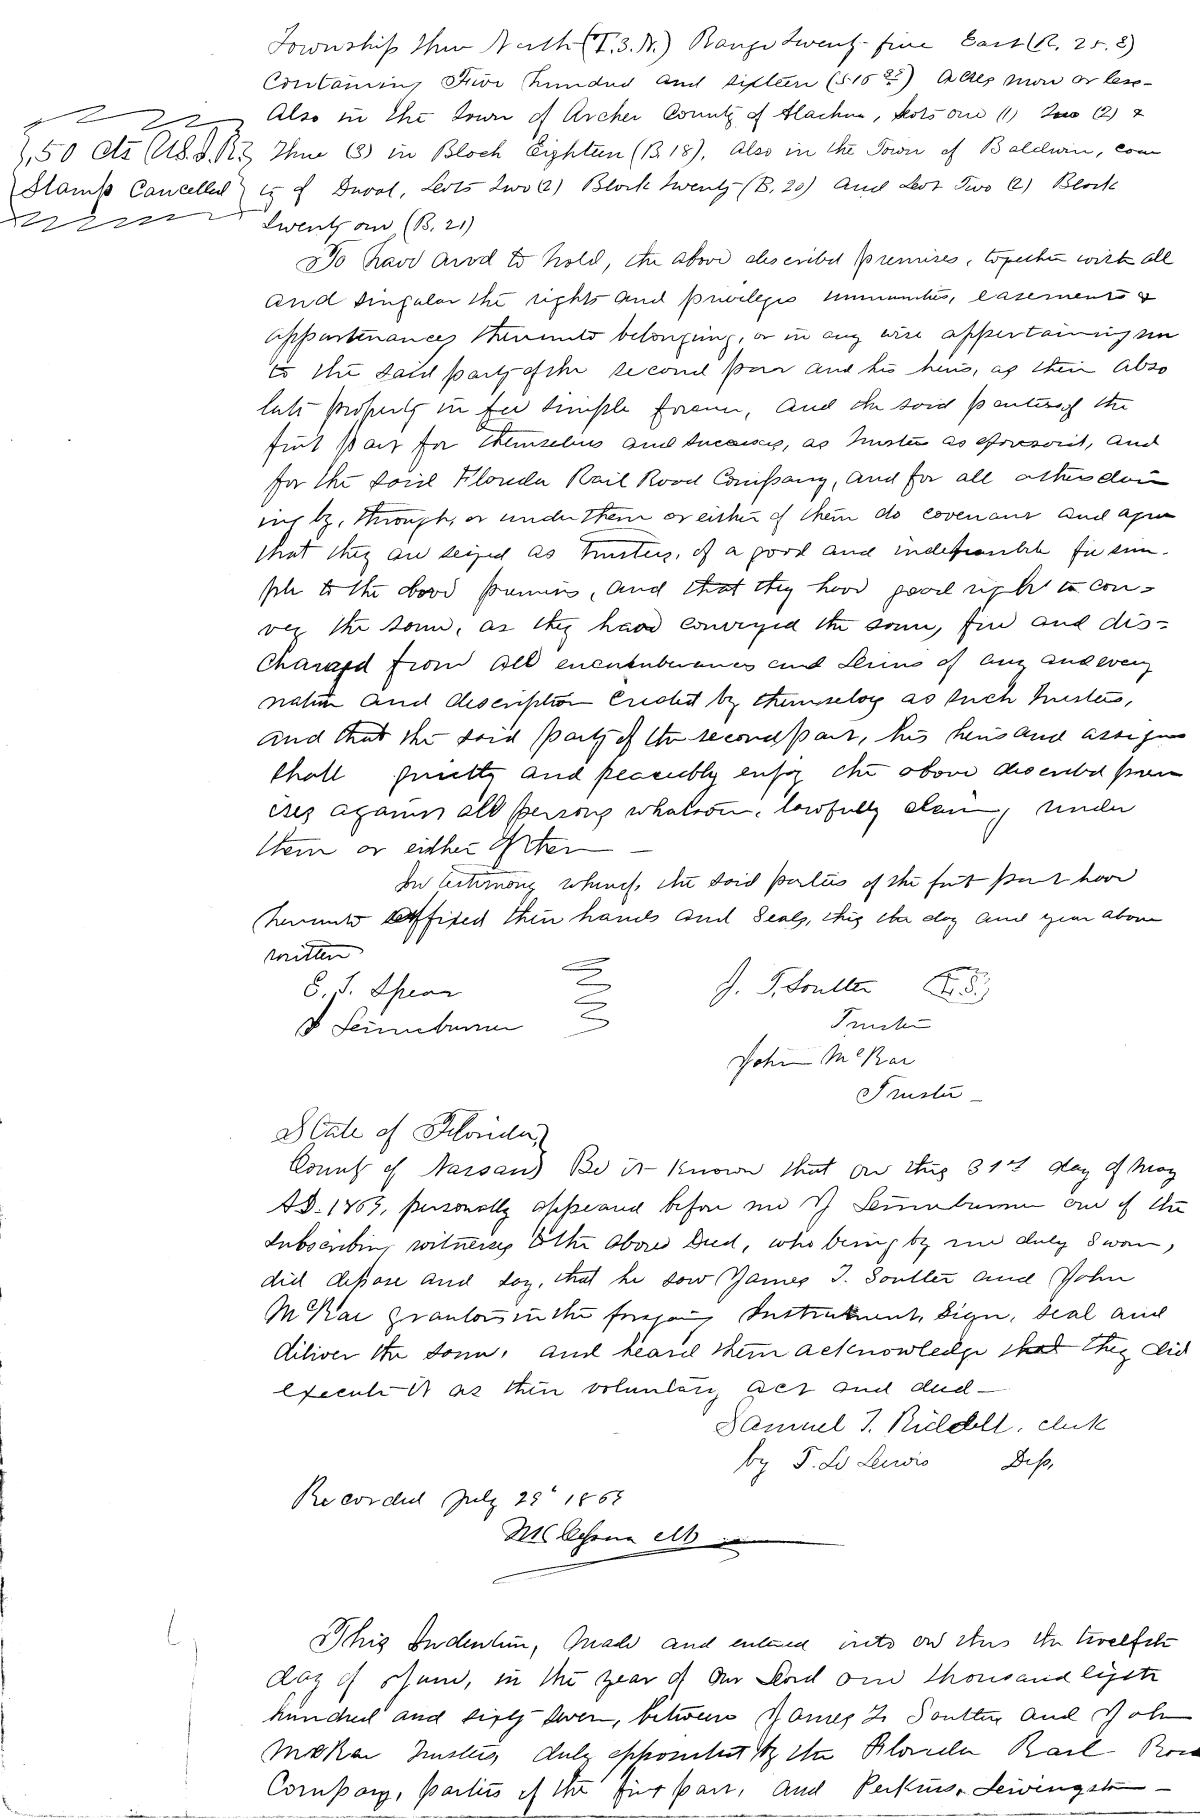 Township three North (T. 3. N.) Range twenty-five East (R. 25. E)
Containing Five hundred and sixteen (516) Acres more or less-
Also in the town of Archer County of Alachua, Lots one (1) Two (2) &
,50 cts (U.S.I.R.) Three (3) in Block Eighteen (B. 18). Also in the Town of Baldwin, coun
Stamp Cancelled ty of Duval, Lots two (2) Block twenty (B. 20) and Lot Two (2) Block
twenty one (B. 21)
To have and to hold, the above described premises, together with all
and singular the rights and privileges immunities, easements &
appurtenances thereunto belonging, or in any wise appertaining un
to the said party of the second part and his heirs, as their abso
lute property in fee simple forever, and the said parties of the
first part for themselves and successors, as trustees as aforesaid, and
for the said Florida Rail Road Company, and for all others claim
ing by, through, or under them or either of them do covenant and agree
that they are seized as Trustees, of a good and indefeasible fee sim-
ple to the above premises, and that they have good right to con-
vey the same, as they have conveyed the same, free and dis-
charged from all encumberances and liens of any and every
nature and description created by themselves as such trustees,
and that the said party of the second part, his heirs and assigns
shall quietly and peaceably enjoy the above described prem
ises against all persons whatsoever, lawfully claiming under
them or either of them —
In testimony whereof, the said parties of the first part have
hereunto affixed their hands and seals, this the day and year above
written
E. J. Spear J. T. Soutter (L.S.)
Trustee
John McRae
Trustee -
State of Florida,
County of Nassau Be it known that on this 31st day of May
AD. 1869, personally appeared before me one of the
subscribing witnesses to the above Deed, who being by me duly sworn,
did depose and say, that he saw James T. Soutter and John
McRae grantors in the foregoing Instrument, sign, seal and
deliver the same, and heard them acknowledge that they did
execute it as their voluntary act and deed —
Samuel T. Riddell, clerk
by T. Lewis Dep.
Recorded July 29" 1869
This Indenture, made and entered into on this the twelfth
day of June, in the year of our Lord one thousand eight
hundred and sixty seven, between James T. Soutter and John
McRae trustees duly appointed by the Florida Rail Road
Company, parties of the first part, and Perkins, Livingston —